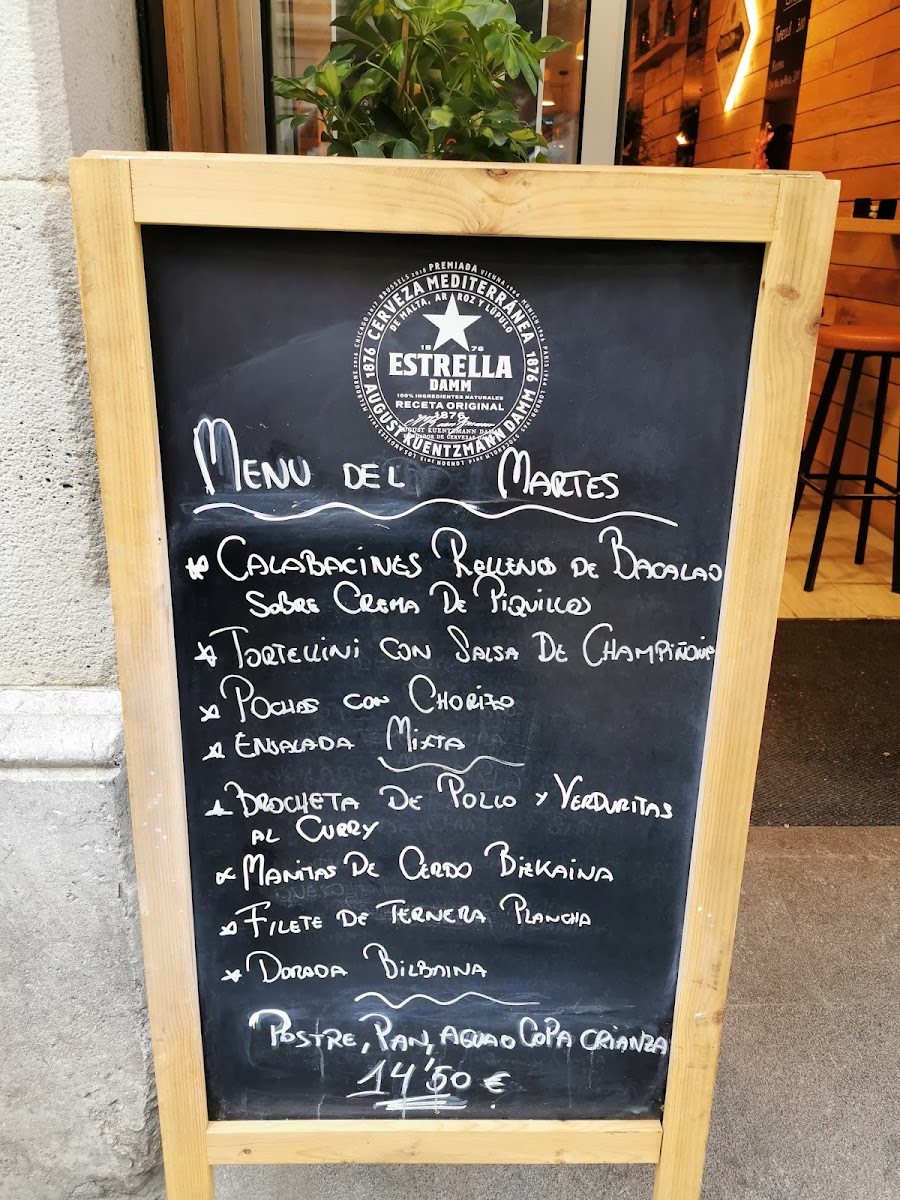 PREMIADA
CERVEZA MEDITERRÁNEA
DE MALTA, ARROZ Y LÚPULO
1876
1876
AUGUST KUENTZMANN DAMM
18 76
ESTRELLA
DAMM
100% INGREDIENTES NATURALES
RECETA ORIGINAL
1876
MENU DEL MARTES
* CALABACINES RELLENOS DE BACALAO
SOBRE CREMA DE PIQUILLOS
* TORTELLINI CON SALSA DE CHAMPIÑONES
* POCHAS CON CHORIZO
* ENSALADA MIXTA
* BROCHETA DE POLLO Y VERDURITAS
AL CURRY
* MANITAS DE CERDO BIZKAINA
* FILETE DE TERNERA PLANCHA
* DORADA BILBAINA
POSTRE, PAN, AGUA O COPA CRIANZA
14'50 €